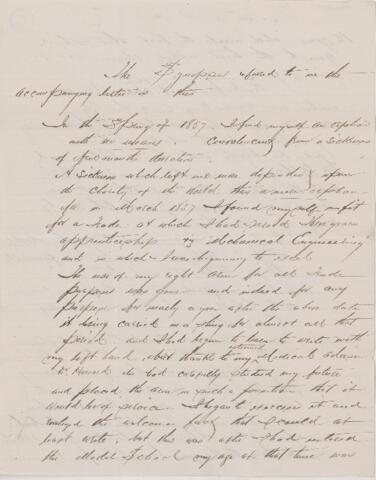 The Synopsis refered to in the
accompanying letter is this
In the Spring of 1857, I find myself an orphan
with no means. Convalescent from a sickness
of five months duration.
A sickness which left me more dependent upon
the charity of the world than a mere orphan
for in March 1857 I found myself unfit
for a Trade, at which I had served three years
apprenticeship by Mechanical Engineering
and in which I was beginning to excel.
The use of my right arm for all trade
purposes was gone and indeed for any
purpose for nearly a year after the above date
it being carried in a sling for almost all that
period. and I had begun to learn to write with
my left hand, but thanks to my Medical adviser
he had carefully studied my future
and placed the arm in such a position that it
would be of service. I began to exercise it and
the welcome fact that I could at
least write, but this was after I had entered
the Model School my age at that time was